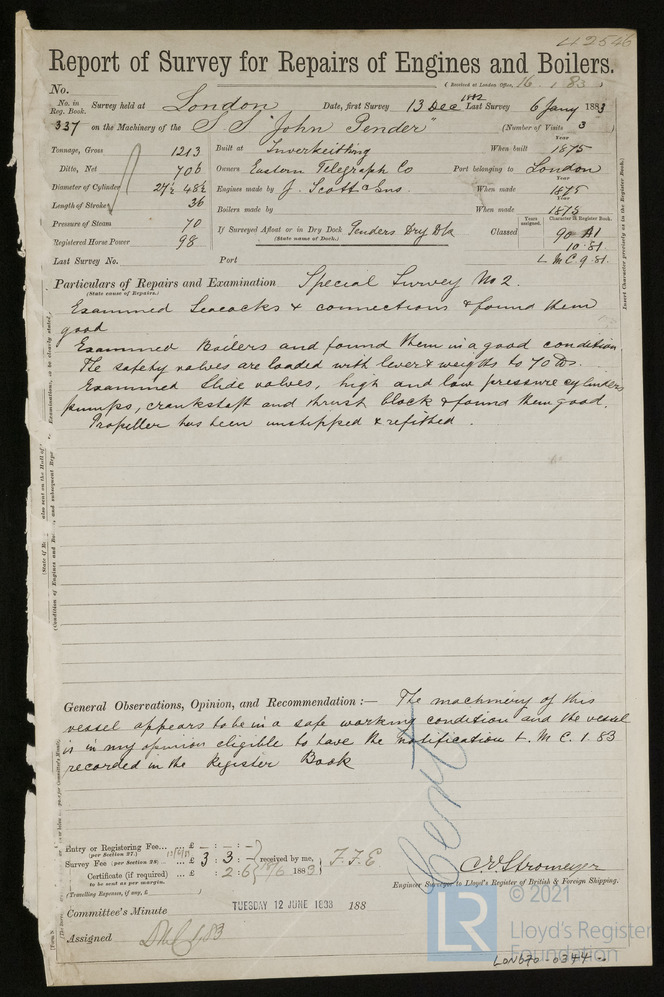 42546
Report of Survey for Repairs of Engines and Boilers.
(Received at London Office, 16. 1 83)
No.
No. in Reg. Book. Survey held at London Date, first Survey 13 Dec 1882 Last Survey 6 Jany 1883
337 on the Machinery of the S S "John Pender" (Number of Visits 3)
Tonnage, Gross 1213 Built at Inverkeithing When built Year 1875
Ditto, Net 706 Owners Eastern Telegraph Co Port belonging to London
Diameter of Cylinder 27½ 48½ Engines made by J. Scott & Sns. When made Year 1875
Length of Stroke 36 Boilers made by When made Year 1875
Pressure of Steam 70 If Surveyed Afloat or in Dry Dock Penders Dry Dk Classed Years assigned. Character in Register Book. 90 A1
Registered Horse Power 98 (State name of Dock.) 10.81
Last Survey No. Port L M C 9.81.
Insert Character precisely as in the Register Book.
Particulars of Repairs and Examination Special Survey No 2.
(State cause of Repairs.)
Examined Seacocks & connections & found them
good
Examined Boilers and found them in a good condition
The safety valves are loaded with lever & weights to 70 lbs.
Examined Slide valves, high and low pressure cylinders
pumps, crankshaft and thrust block & found them good.
Propeller has been unshipped & refitted.
General Observations, Opinion, and Recommendation :— The machinery of this
vessel appears to be in a safe working condition and the vessel
is in my opinion eligible to have the notification L. M. C. 1. 83
recorded in the Register Book
Cert
Entry or Registering Fee... £ — : — : —
(per Section 27.)
Survey Fee (per Section 28) ... £ 3 : 3 : — received by me, F.F.E
Certificate (if required) ... £ : 2 : 6 1883
to be sent as per margin.
(Travelling Expenses, if any, £ )
Engineer Surveyor to Lloyd's Register of British & Foreign Shipping.
Committee's Minute TUESDAY 12 JUNE 1883 188
Assigned
LR
© 2021
Lloyd's Register
Foundation
LON670-0344